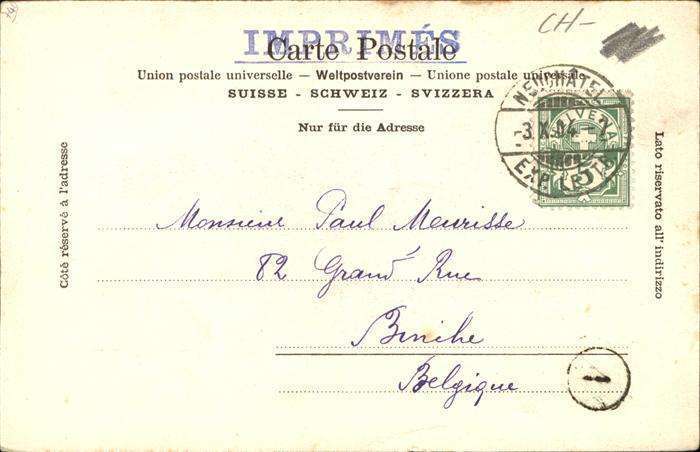 IMPRIMÉS
CH-
Carte Postale
Union postale universelle — Weltpostverein — Unione postale universale
SUISSE - SCHWEIZ - SVIZZERA
Nur für die Adresse
NEUCHATEL
-3.X.04.-
EXP. LETTR.
HELVETIA
5
Côté réservé à l'adresse
Lato riservato all' indirizzo
Monsieur Paul Meurisse
82 Grand' Rue
Binche
Belgique
1